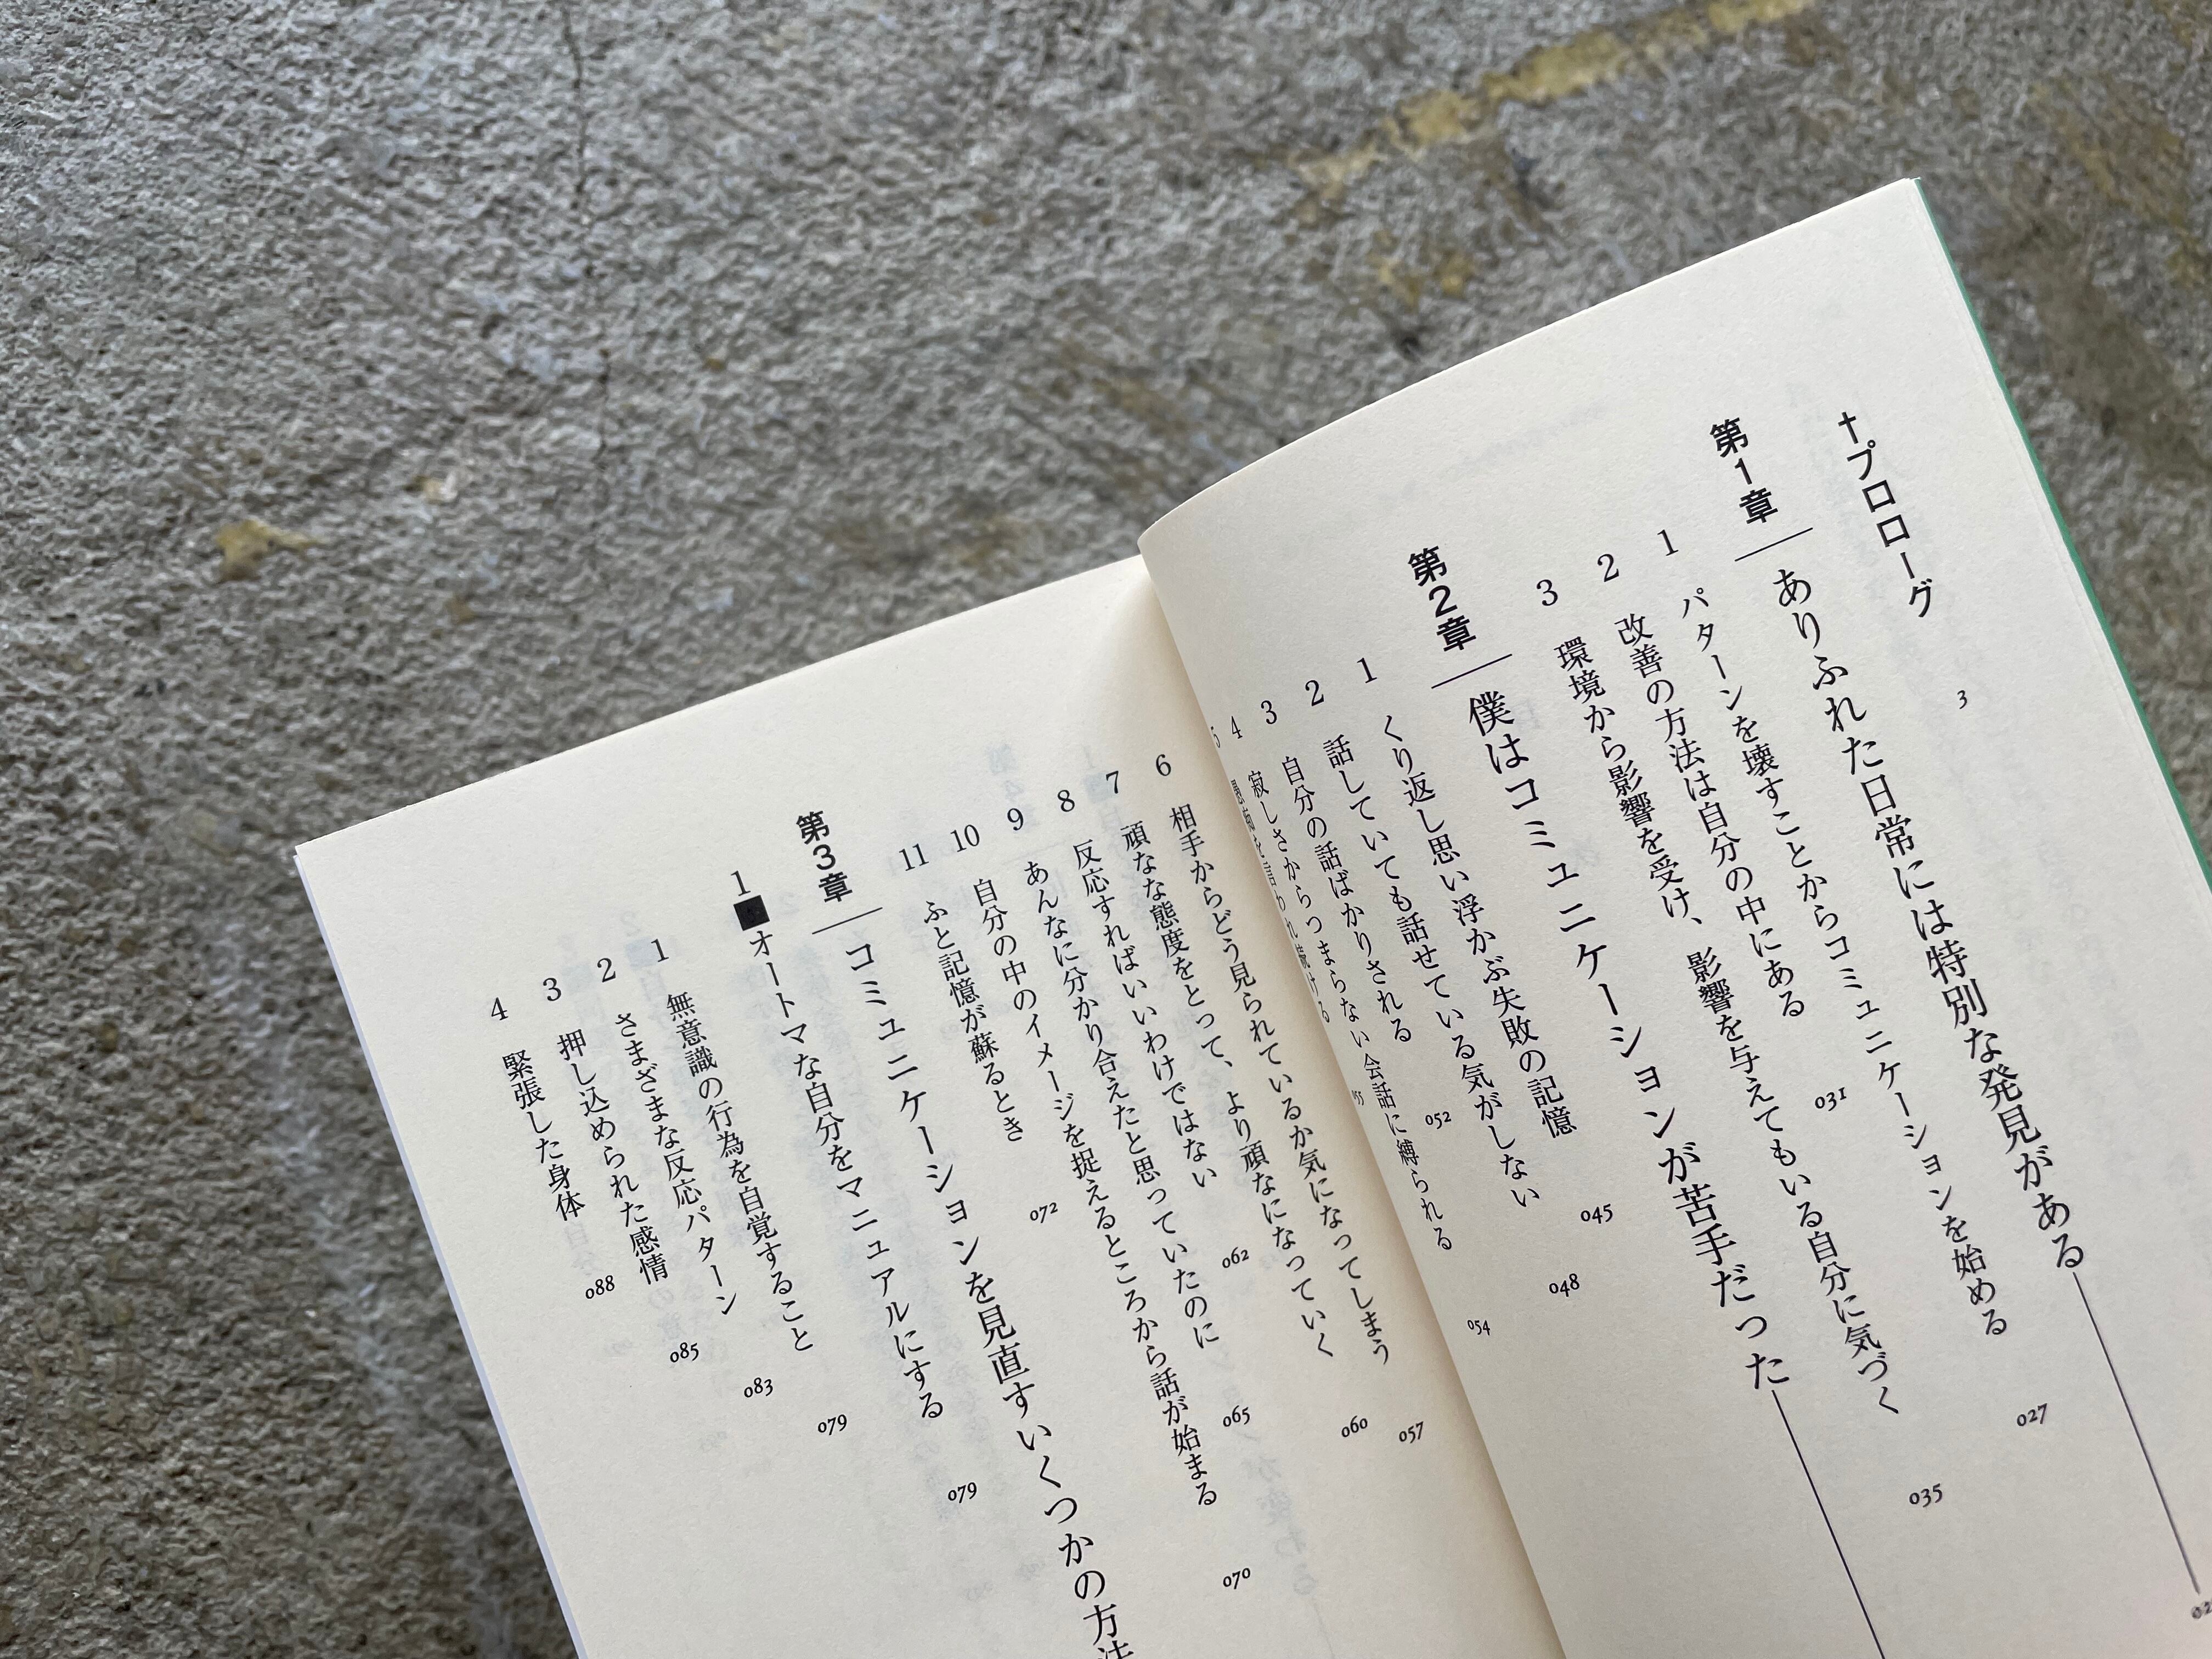 †プロローグ 3
第1章 ありふれた日常には特別な発見がある
1 パターンを壊すことからコミュニケーションを始める 027
2 改善の方法は自分の中にある 031
3 環境から影響を受け、影響を与えてもいる自分に気づく 035
第2章 僕はコミュニケーションが苦手だった
1 くり返し思い浮かぶ失敗の記憶 045
2 話していても話せている気がしない 048
3 自分の話ばかりされる 052
4 寂しさからつまらない会話に縛られる 054
5 愚痴を言われ続ける
6 相手からどう見られているか気になってしまう 057
7 頑なな態度をとって、より頑なになっていく 060
8 反応すればいいわけではない 062
9 あんなに分かり合えたと思っていたのに 065
10 自分の中のイメージを捉えるところから話が始まる 070
11 ふと記憶が蘇るとき 072
第3章 コミュニケーションを見直すいくつかの方法
1■オートマな自分をマニュアルにする 079
1 無意識の行為を自覚すること 079
2 さまざまな反応パターン 083
3 押し込められた感情 085
4 緊張した身体 088